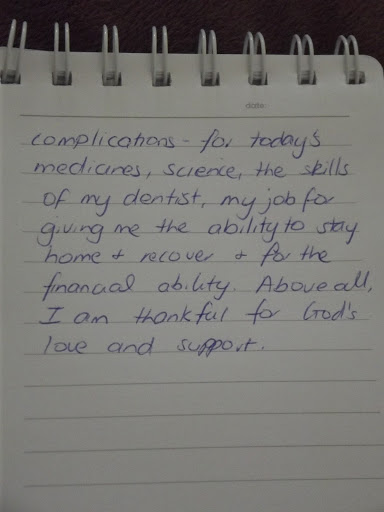 date:
complications - for today's
medicines, science, the skills
of my dentist, my job for
giving me the ability to stay
home + recover + for the
financial ability. Above all,
I am thankful for God's
love and support.